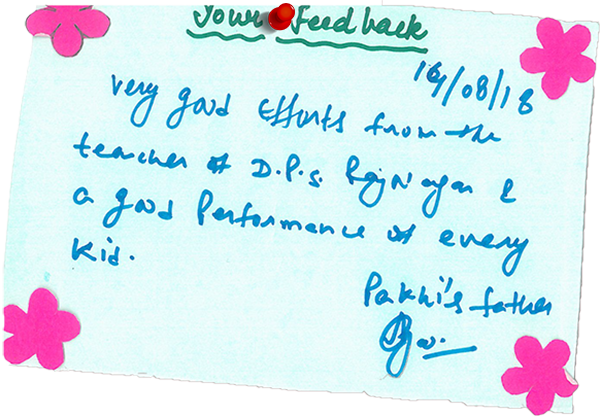 Your Feedback
16/08/18
very good Efforts from the
teacher of D.P.S. RajNagar &
a good Performance of every
Kid.
Pakhi's father